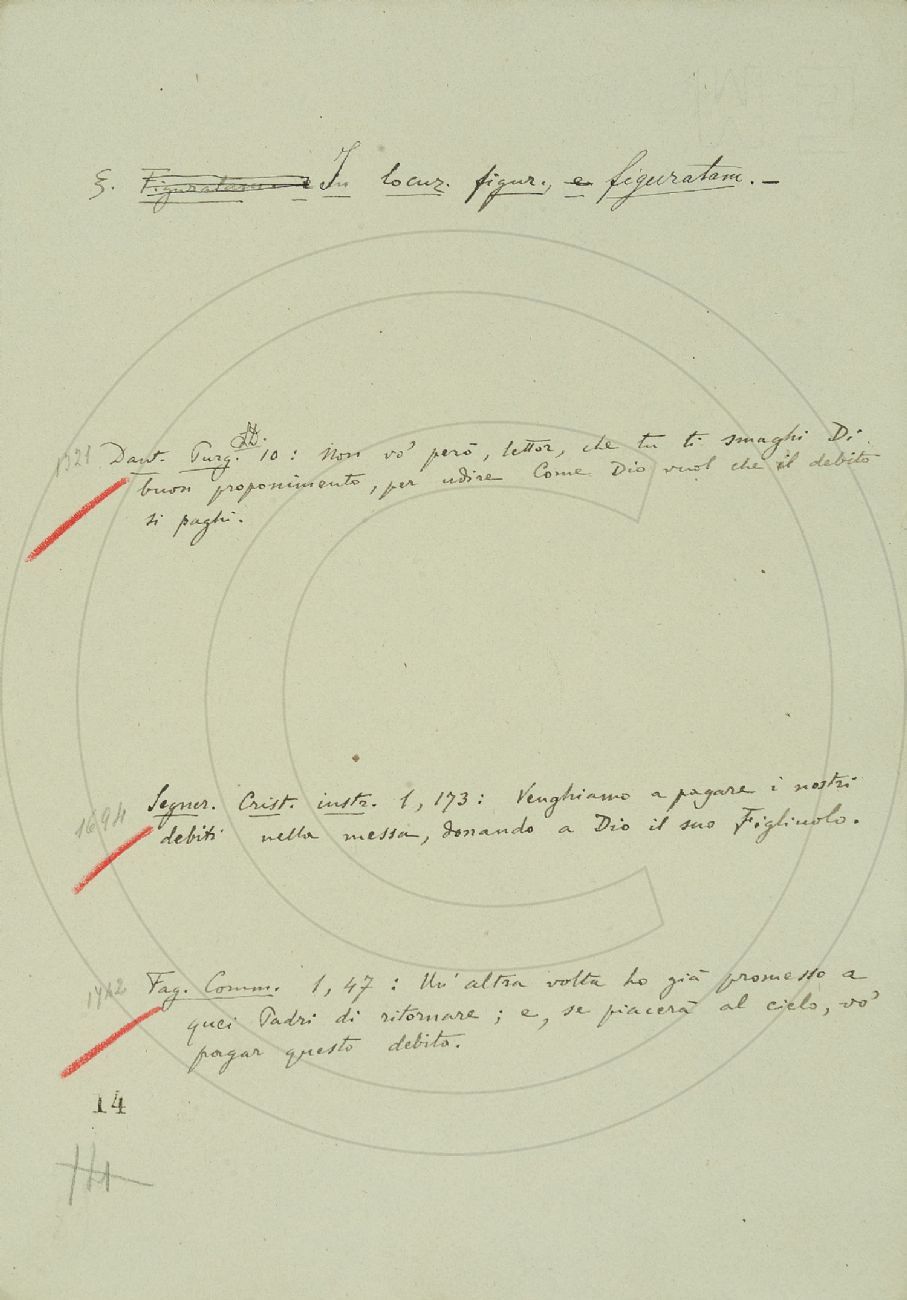 §. Figuratam. e In locuz. figur., e figuratam. –
1321 Dant. Purg. 10: Non vo' però, lettor, che tu ti smaghi Di
buon proponimento, per udire Come Dio vuol che il debito
si paghi.
1694 Segner. Crist. instr. 1, 173: Venghiamo a pagare i nostri
debiti nella messa, donando a Dio il suo Figliuolo.
1742 Fag. Comm. 1, 47: Un'altra volta ho già promesso a
quei Padri di ritornare; e, se piacerà al cielo, vo'
pagar questo debito.
14